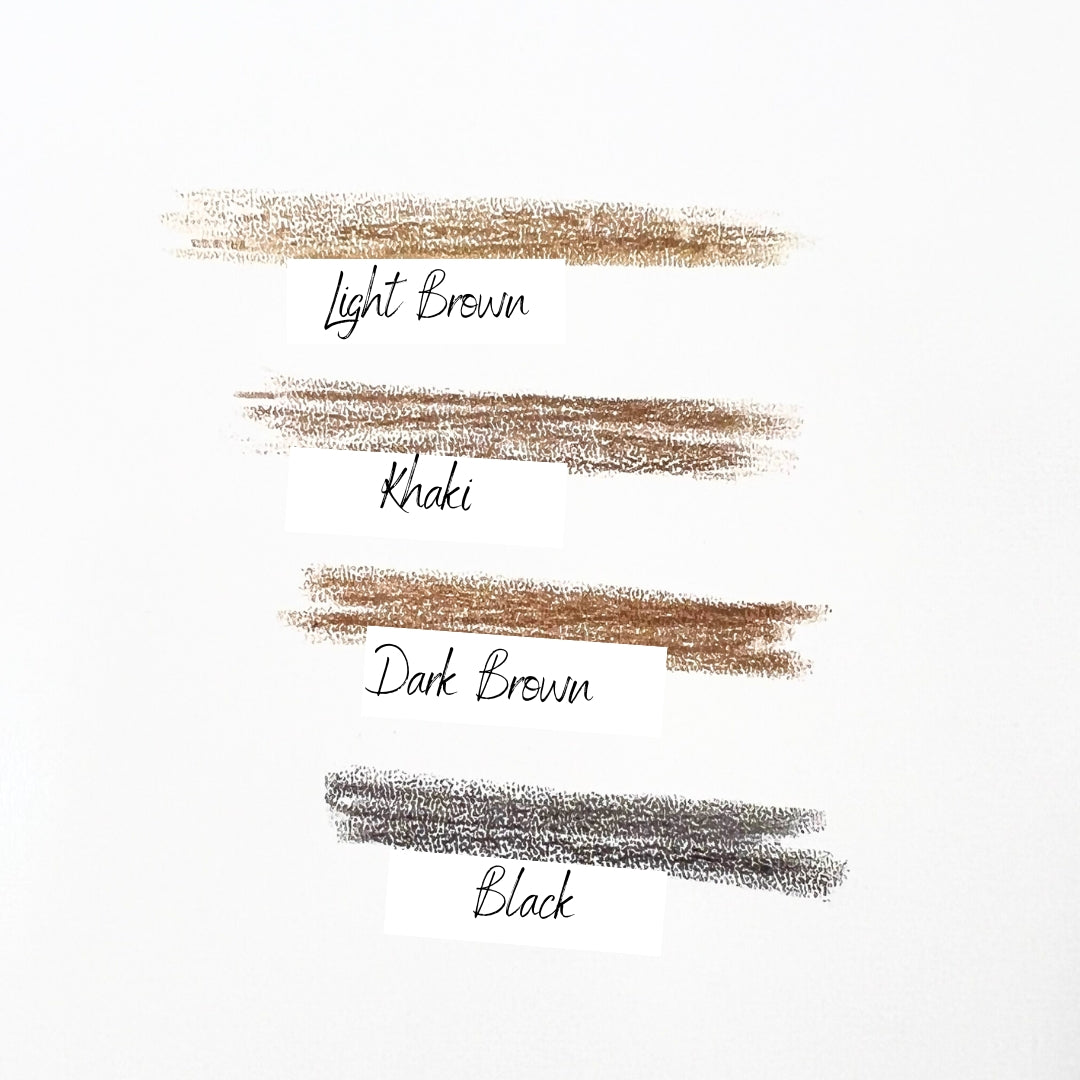 Light Brown
Khaki
Dark Brown
Black